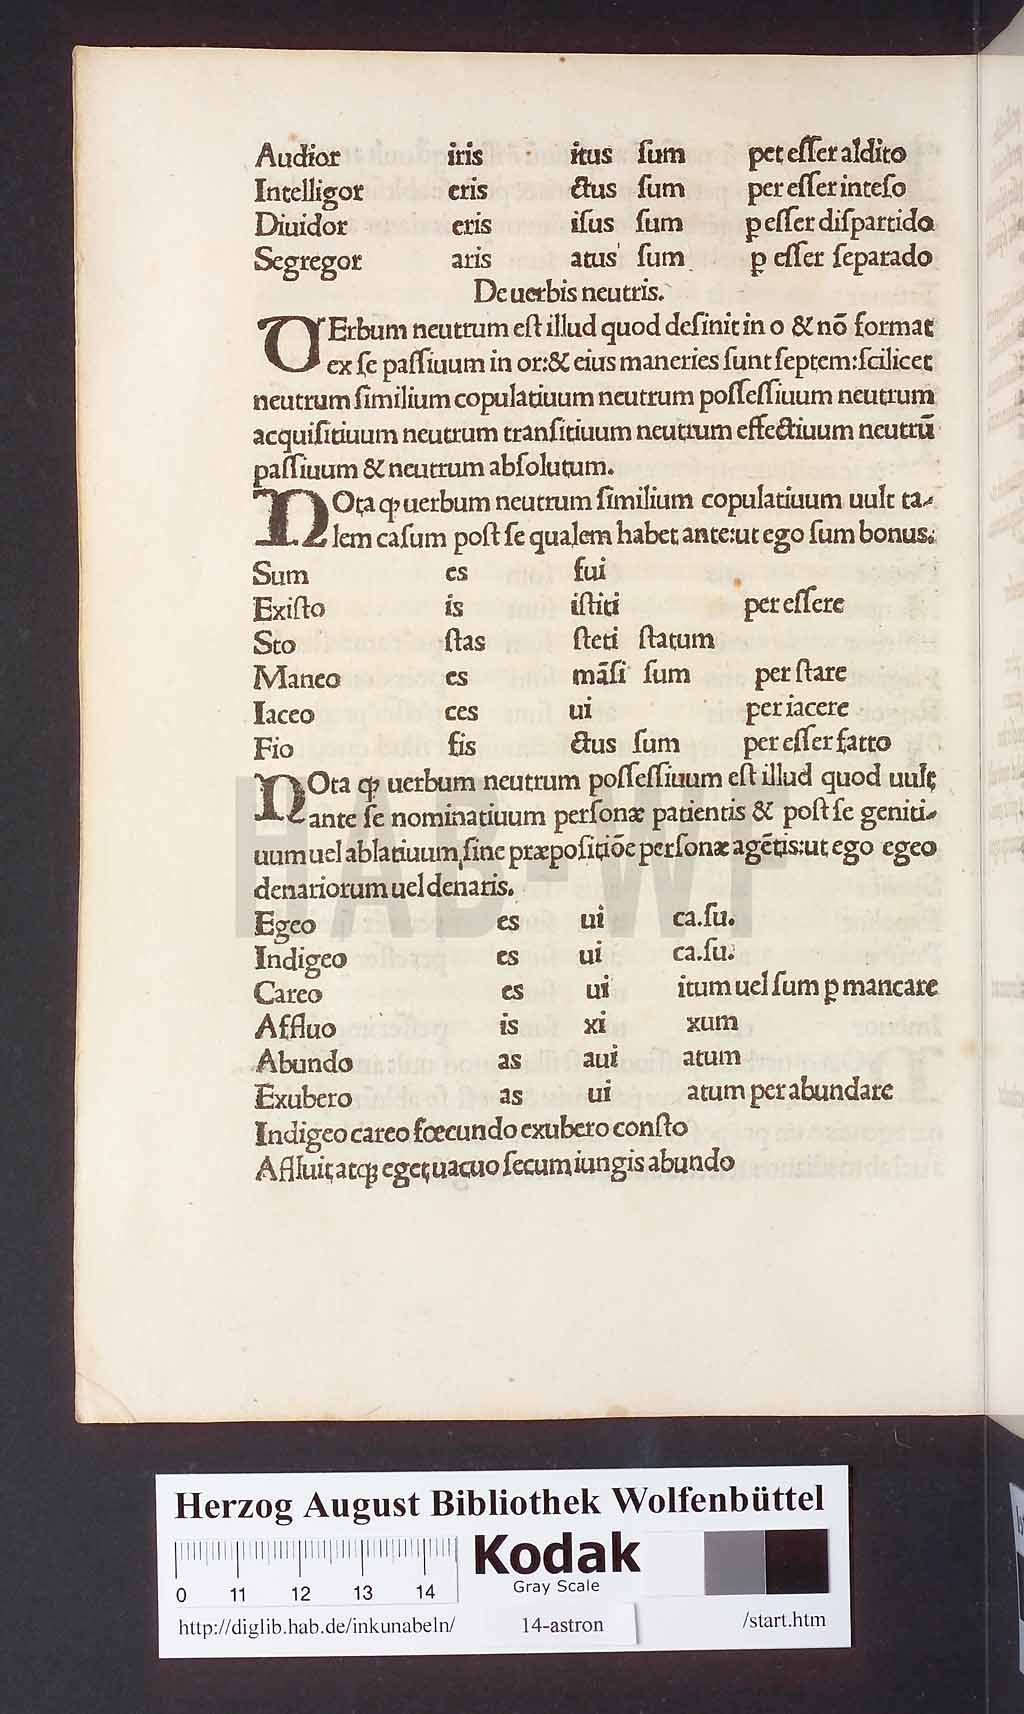 Audior iris itus ſum per eſſer aldito
Intelligor eris ctus ſum per eſſer inteſo
Diuidor eris iſus ſum ꝑ eſſer diſpartido
Segregor aris atus ſum ꝑ eſſer ſeparado
De uerbis neutris.
VErbum neutrum eſt illud quod deſinit in o & nō format
ex ſe paſſiuum in or:& eius maneries ſunt ſeptem:ſcilicet
neutrum ſimilium copulatiuum neutrum poſſeſſiuum neutrum
acquiſitiuum neutrum tranſitiuum neutrum effectiuum neutrū
paſſiuum & neutrum abſolutum.
NOta ꝙ uerbum neutrum ſimilium copulatiuum uult ta-
lem caſum poſt ſe qualem habet ante:ut ego ſum bonus.
Sum es fui
Exiſto is iſtiti per eſſere
Sto ſtas ſteti ſtatum
Maneo es māſi ſum per ſtare
Iaceo ces ui per iacere
Fio fis ctus ſum per eſſer fatto
NOta ꝙ uerbum neutrum poſſeſſiuum eſt illud quod uult
ante ſe nominatiuum perſonæ patientis & poſt ſe geniti-
uum uel ablatiuum ſine præpoſitiōe perſonæ agētis:ut ego egeo
denariorum uel denaris.
Egeo es ui ca.ſu.
Indigeo es ui ca.ſu.
Careo es ui itum uel ſum ꝑ mancare
Affluo is xi xum
Abundo as aui atum
Exubero as ui atum per abundare
Indigeo careo fœcundo exubero conſto
Affluit atqꝫ eget uacuo ſecum iungis abundo
HAB-WF
Herzog August Bibliothek Wolfenbüttel
0 11 12 13 14
Kodak
Gray Scale
http://diglib.hab.de/inkunabeln/ 14-astron /start.htm